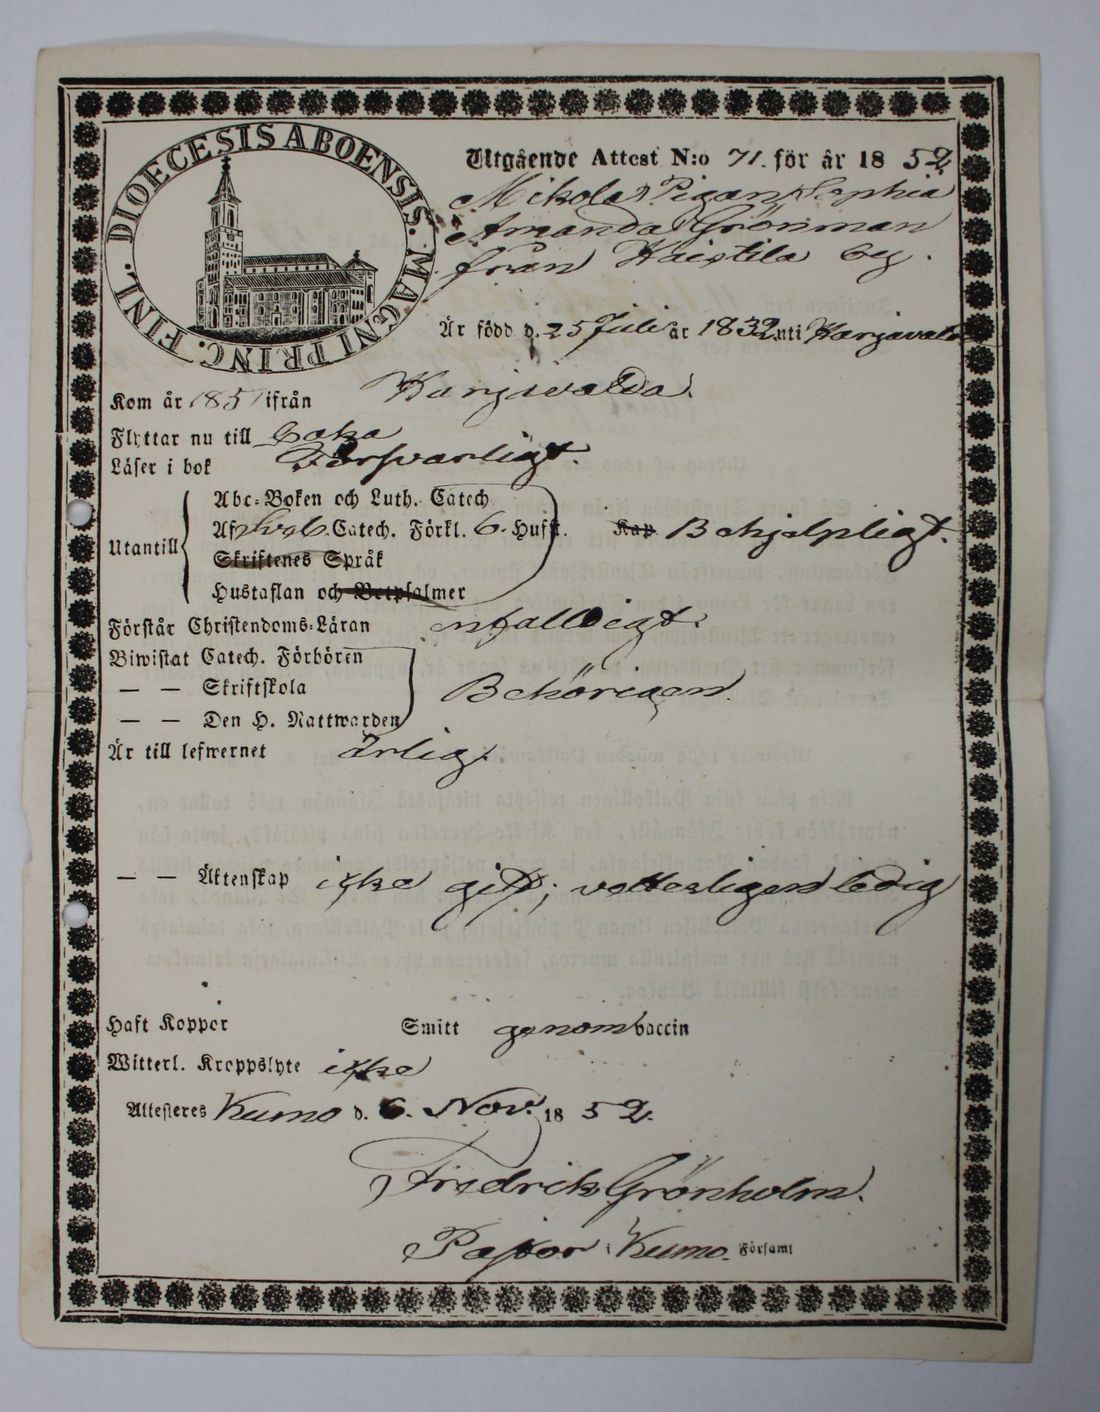 DIOECESIS ABOENSIS. MAGNI PRINC. FINL.
Utgående Attest N:o 71. för år 1852
Pigan Sophia
Amanda Grönman
från Kaistila by.
Är född d. 25 Juli år 1832 uti Harjavalda
Kom år 1851 ifrån Harjavalda.
Flyttar nu till
Läser i bok Försvarligt.
Utantill
Abc-Boken och Luth. Catech
Af Sveb. Catech. Förkl. 6. Hufst. Kap. Behjelpligt.
Skriftenes Språk
Hustaflan och Botpsalmer
Förstår Christendoms-Läran enfaldigt.
Biwistat Catech. Förhören
— — Skriftskola Behörigen.
— — Den H. Nattwarden
Är till lefwernet ärlig.
— — Äktenskap icke gift; vetterligen ledig
Haft Koppor Smitt genom vaccin
Witterl. Kroppslyte icke
Attesteres Kumo d. 6. Nov. 1852.
Fredrik Grönholm.
Pastor i Kumo Församl